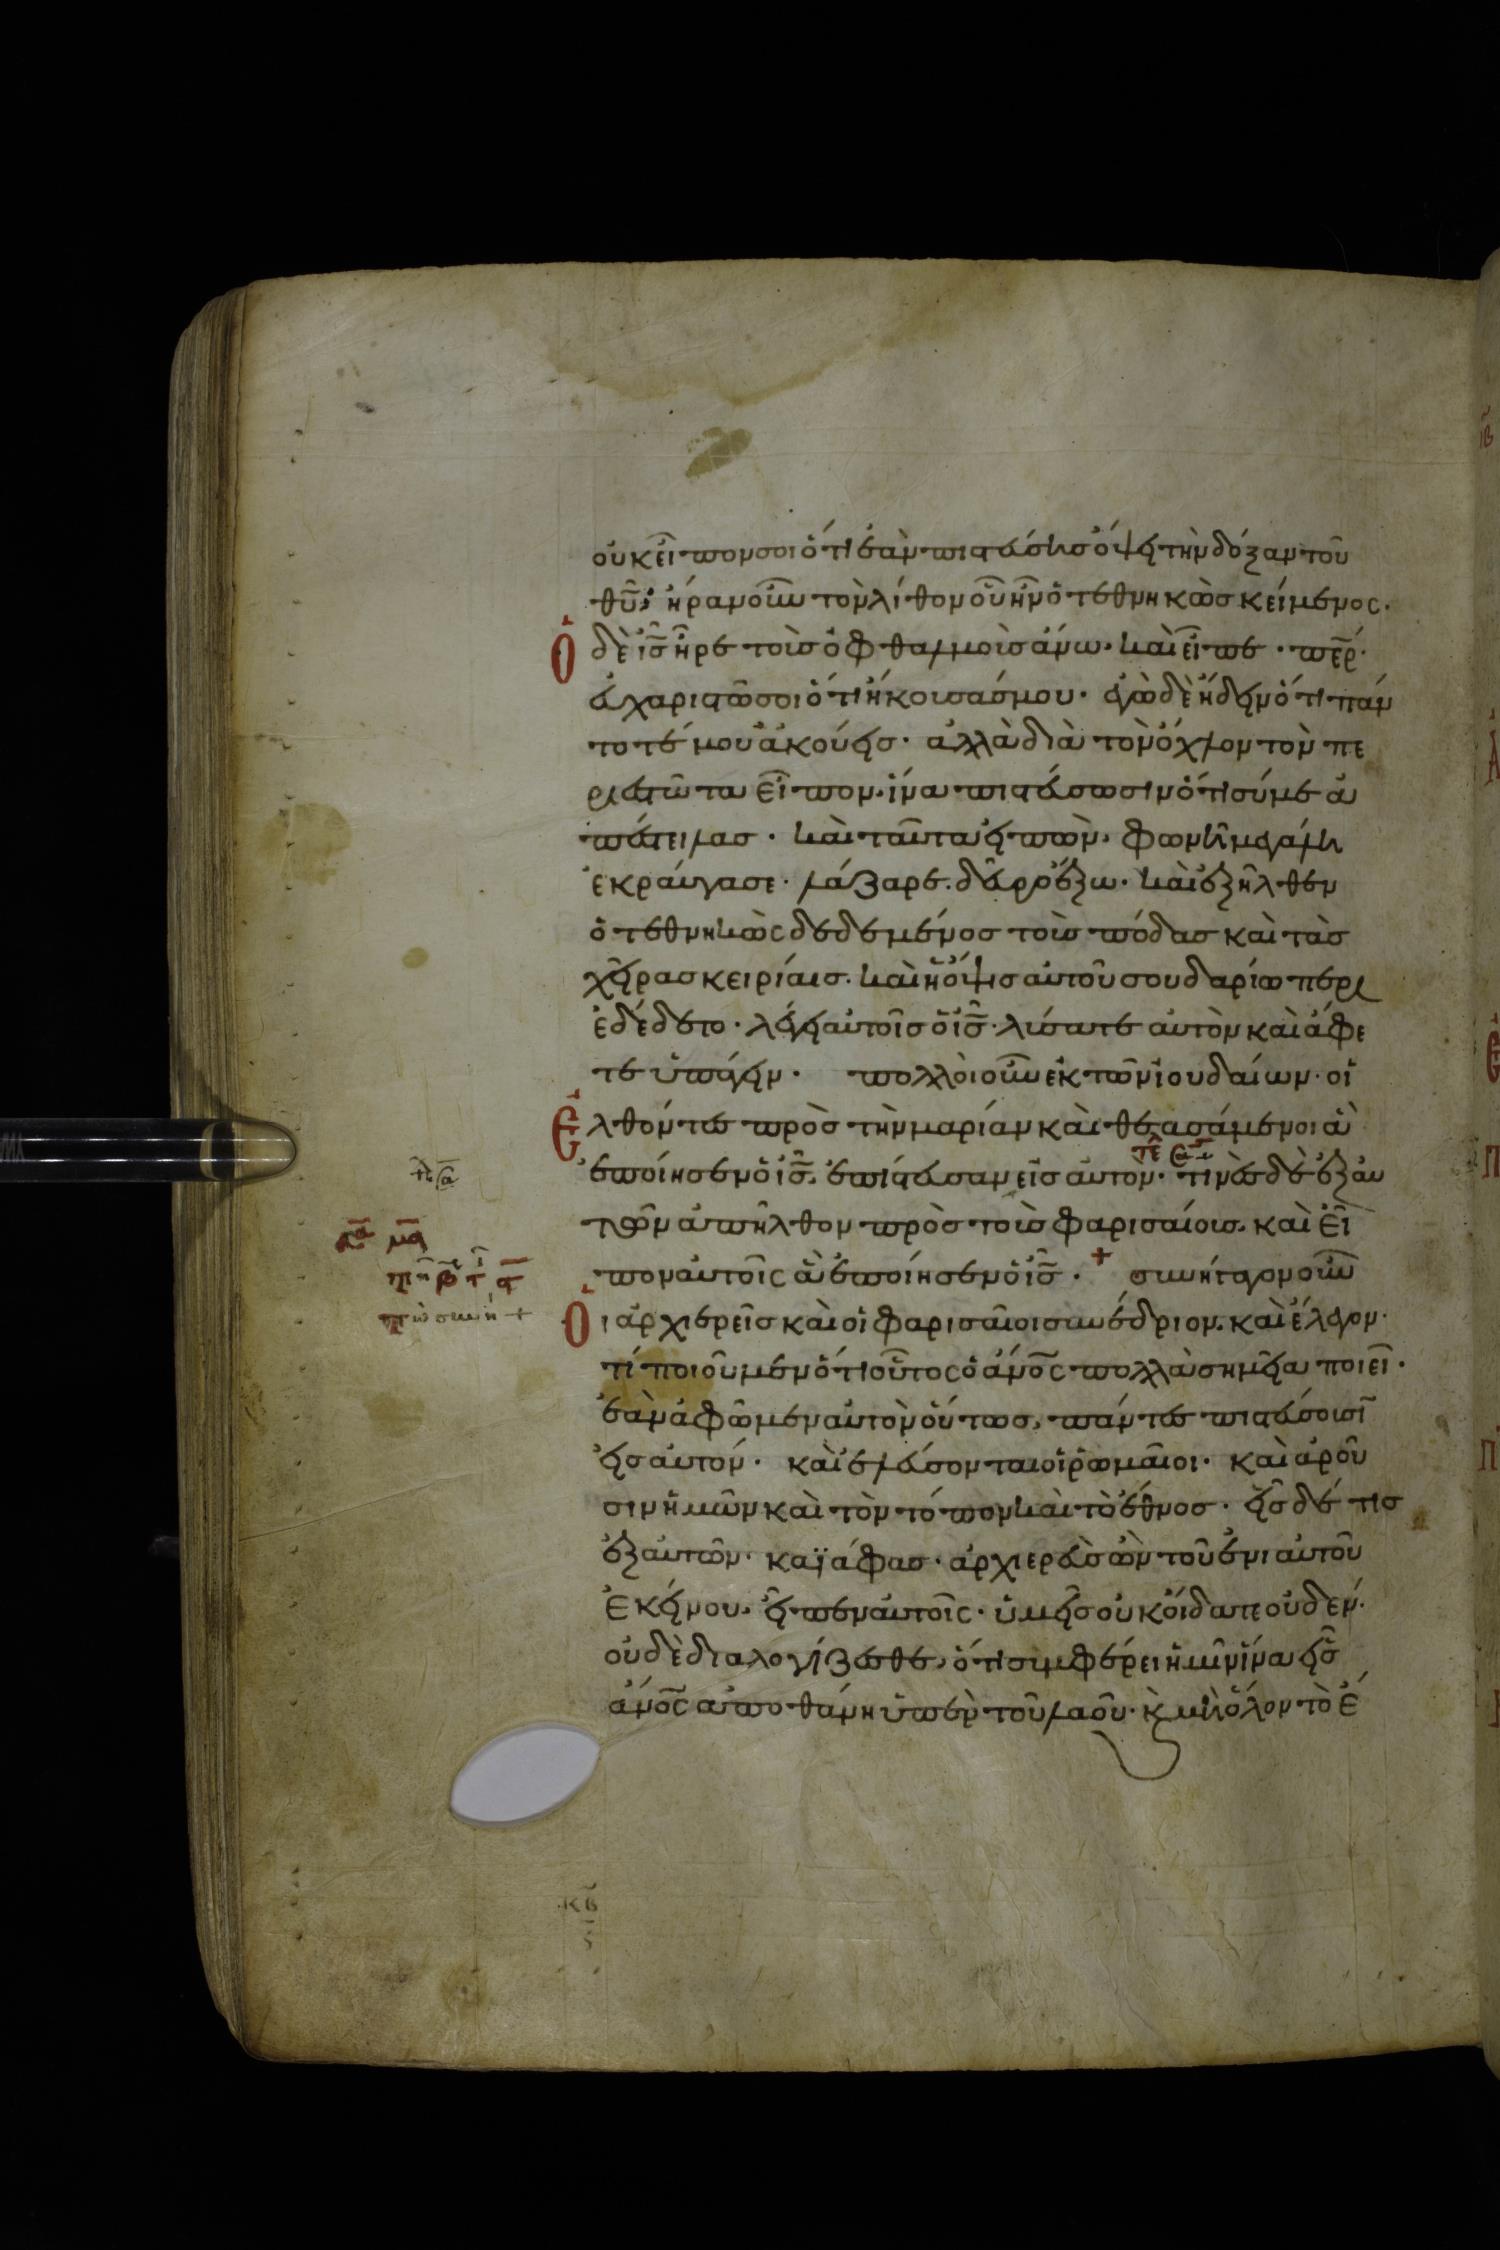 οὐκ εἶπον σοι ὅτι ἐὰν πιστεύσης ὄψει τὴν δόξαν τοῦ
θῦ; ἦραν οὖν τὸν λίθον οὗ ἦν ὁ τεθνηκὼς κείμενος.
Ὁ δὲ ἰς̅ ἦρε τοὺς ὀφθαλμοὺς ἄνω. καὶ εἶπε· πε̅ρ·
εὐχαριστῶ σοι ὅτι ἤκουσάς μου. ἐγὼ δὲ ἤδειν ὅτι πάν
τοτέ μου ἀκούεις. ἀλλὰ διὰ τὸν ὄχλον τὸν πε
ριεστῶτα εἶπον. ἵνα πιστεύσωσιν ὅτι σύ με ἀ
πέστειλας. καὶ ταῦτα εἰπὼν, φωνῆ μεγάλη
ἐκραύγασε· λάζαρε. δεῦρο ἔξω. καὶ ἐξῆλθεν
ὁ τεθνηκὼς δεδεμένος τοὺς πόδας καὶ τὰς
χεῖρας κειρίαις. καὶ ἡ ὄψις αὐτοῦ σουδαρίω περι
εδέδετο. λέγει αὐτοῖς ὁ ἰς̅. λύσατε αὐτὸν καὶ ἄφε
τε ὑπάγειν. πολλοὶ οὖν ἐκ τῶν ἰουδαίων. οἱ
Ἐλθόντες πρὸς τὴν μαρίαν καὶ θεασάμενοι ἃ
τέ
ἐποίησεν ὁ ἰς̅. ἐπίστευσαν εἰς αὐτον. τινὲς δὲ ἐξ αὐ
τῶν ἀπῆλθον πρὸς τοὺς φαρισαίους. καὶ εἶ
πον αὐτοῖς ἃ ἐποίησεν ὁ ἰς̅. + συνήγαγον οὖν
Οἱ ἀρχιερεῖς καὶ οἱ φαρισαῖοι συνέδριον. καὶ ἔλεγον.
τί ποιοῦμεν ὅτι οὗτος ὁ ἄνο̅ς πολλὰ σημεῖα ποιεῖ.
ἐὰν ἀφῶμεν αὐτὸν οὕτως, πάντες πιστεύσουσῖ
εἰς αὐτόν. καὶ ἐλεύσονται οἱ ῥωμαῖοι. καὶ ἀροῦ
σιν ἡμῶν καὶ τὸν τόπον καὶ τὸ ἔθνος. εἷς δέ τις
ἐξ αὐτῶν. καϊάφας. ἀρχιερεὺς ὢν τοῦ ἐνιαυτοῦ
Ἐκείνου. εἶπεν αὐτοῖς. ὑμεῖς οὐκ οἴδατε οὐδεν.
οὐδὲ διαλογίζεσθε, ὅτι συμφέρει ἡμῖν ἵνα εἷς
ἄνο̅ς ἀποθάνη ὑπὲρ τοῦ λαοῦ. κ̀ μὴ ὅλον τὸ ἔ